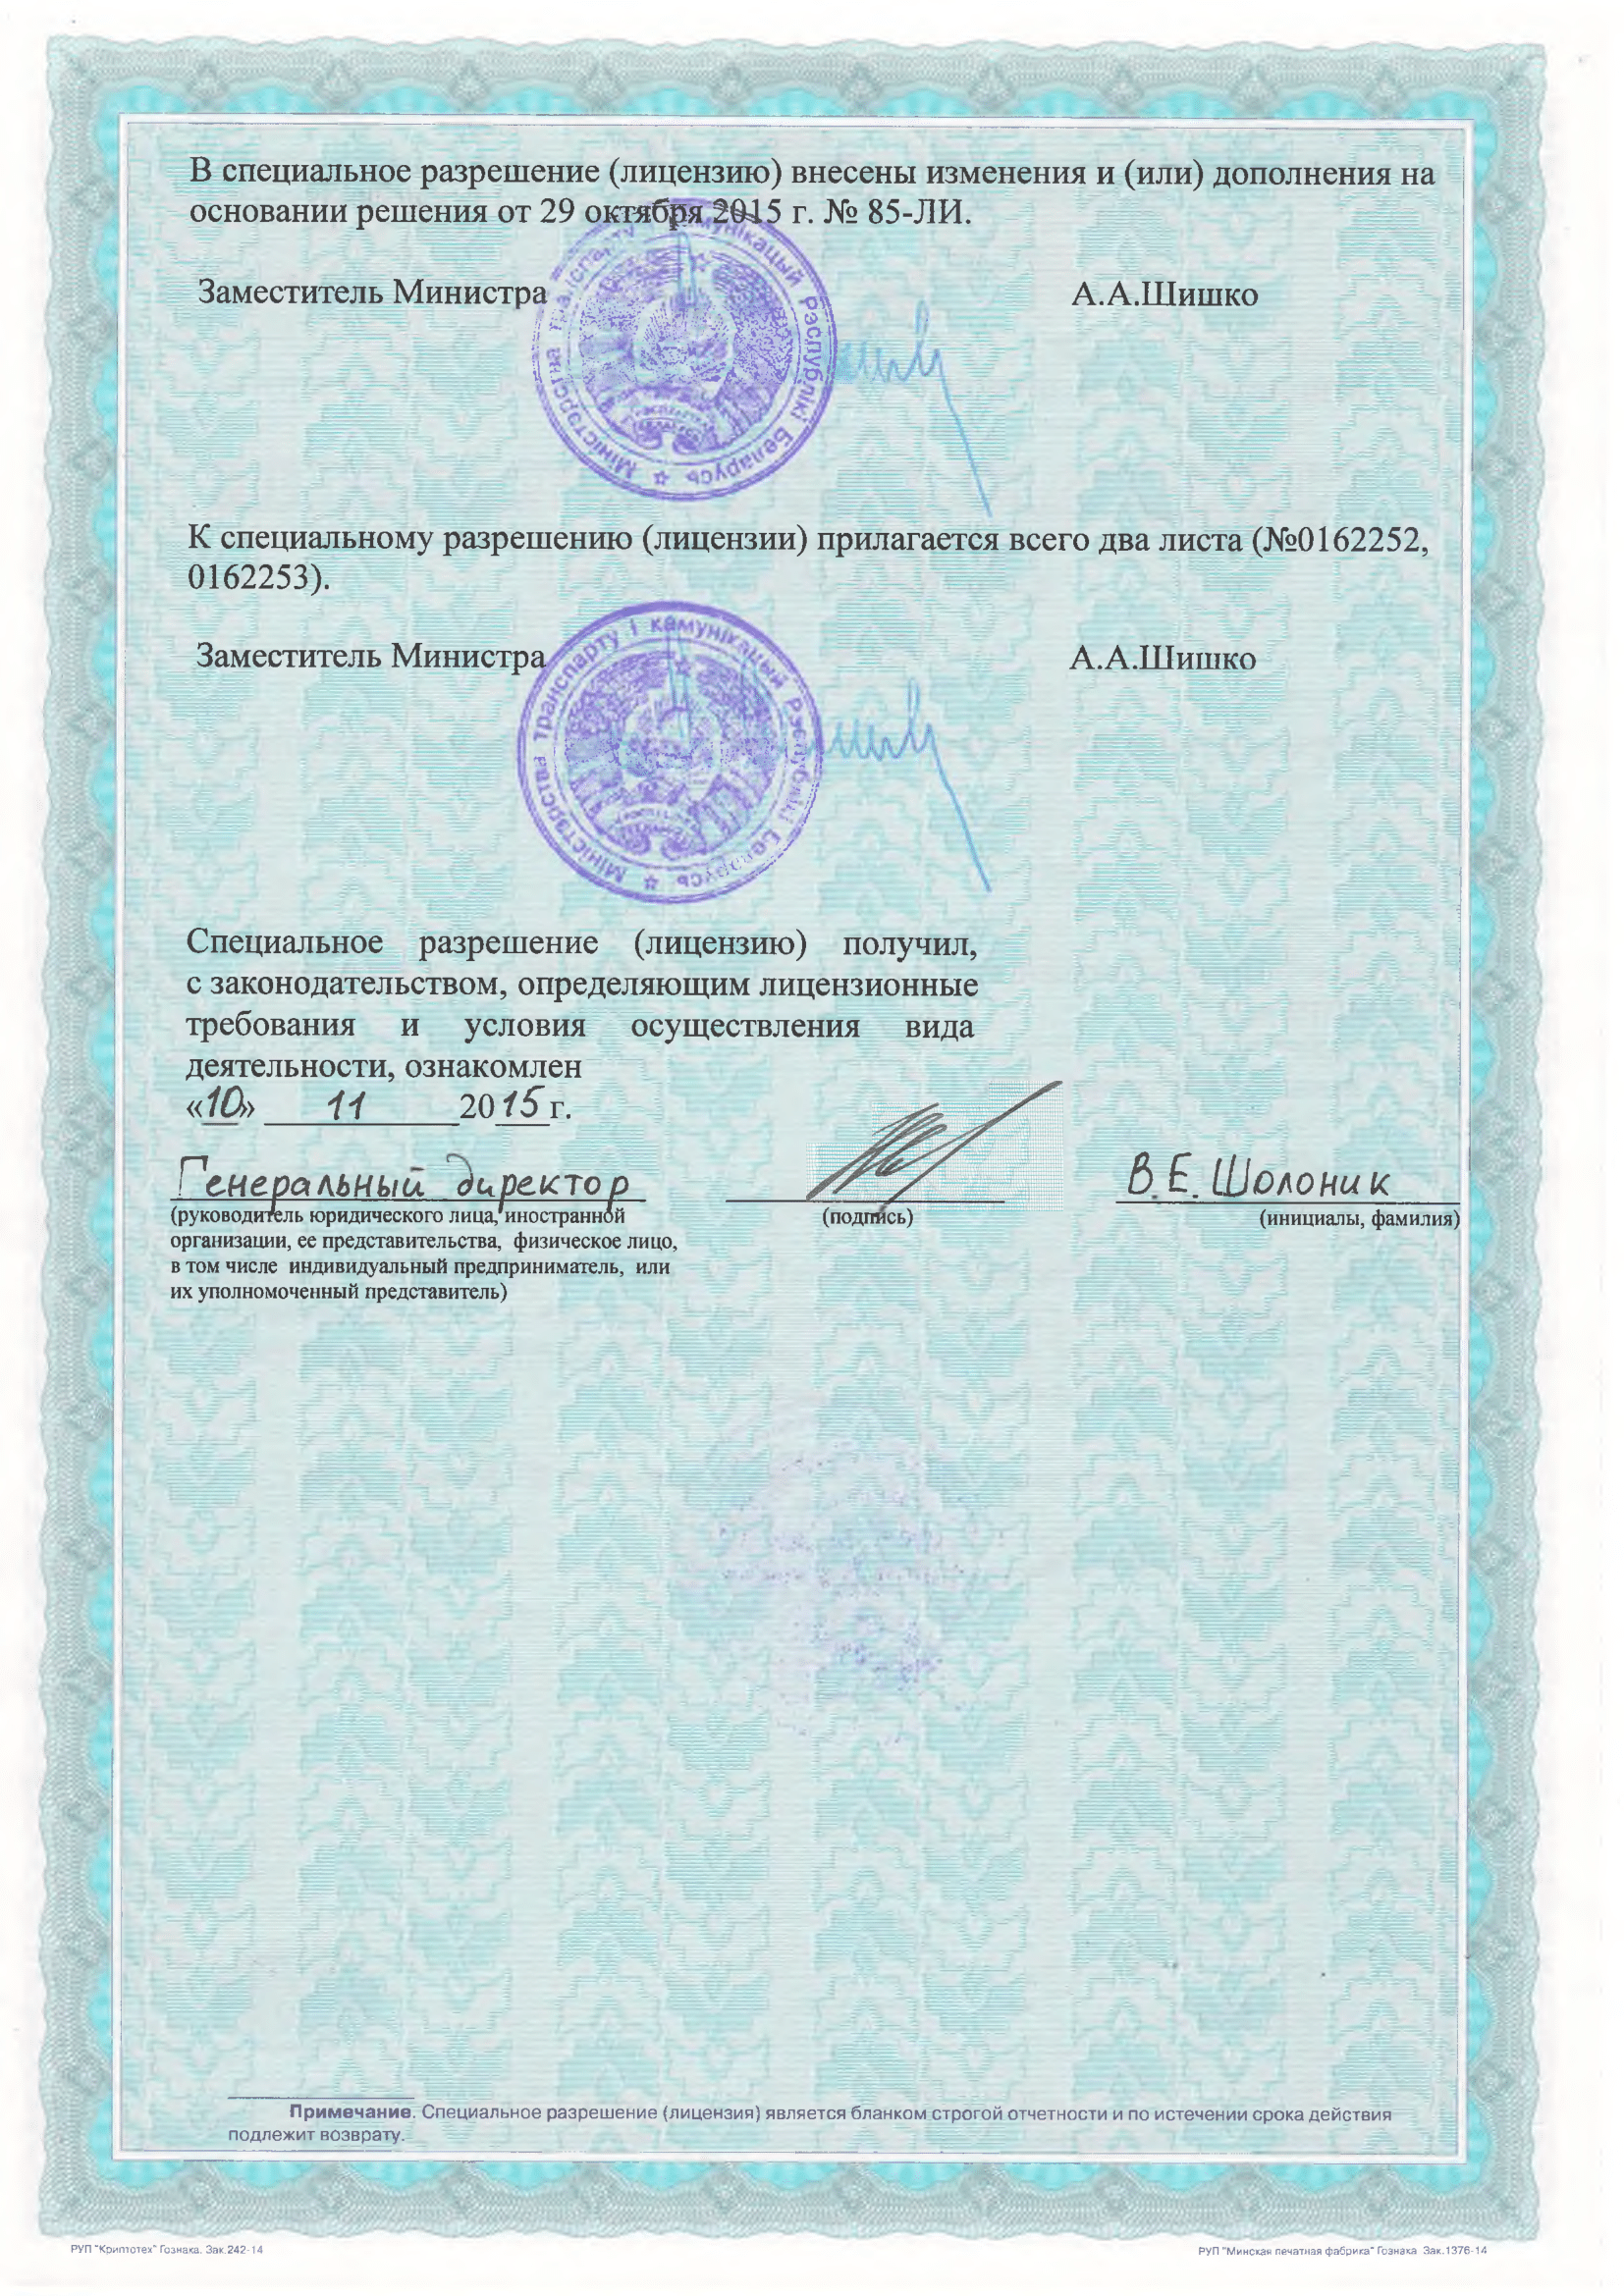 В специальное разрешение (лицензию) внесены изменения и (или) дополнения на
основании решения от 29 октября 2015 г. № 85-ЛИ.
Заместитель Министра А.А.Шишко
Міністэрства транспарту і камунікацый Рэспублікі Беларусь
К специальному разрешению (лицензии) прилагается всего два листа (№0162252,
0162253).
Заместитель Министра А.А.Шишко
Міністэрства транспарту і камунікацый Рэспублікі Беларусь
Специальное разрешение (лицензию) получил,
с законодательством, определяющим лицензионные
требования и условия осуществления вида
деятельности, ознакомлен
«10» 11 2015 г.
Генеральный директор В.Е. Шолоник
(руководитель юридического лица, иностранной (подпись) (инициалы, фамилия)
организации, ее представительства, физическое лицо,
в том числе индивидуальный предприниматель, или
их уполномоченный представитель)
Примечание. Специальное разрешение (лицензия) является бланком строгой отчетности и по истечении срока действия
подлежит возврату.
РУП "Криптотех" Гознака. Зак.242-14 РУП "Минская печатная фабрика" Гознака Зак.1376-14